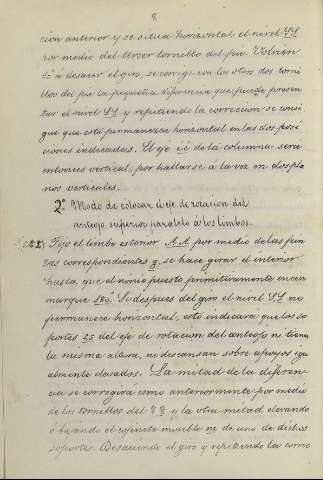 8
cion anterior y se situa horizontal el nivel LL
por medio del tercer tornillo del pie. Volvien
do á desacer el giro, se corrige con los otros dos torni
llos del pie la pequeña diferencia que puede presen
tar el nivel LL y repitiendo la correccion se consi
gue que está permanezca horizontal en las dos posi
ciones indicadas. El eje ii de la columna sera
entonces vertical, por hallarse á la vez en dos pla
nos verticales.
2º Modo de colocar el eje de rotacion del
anteojo superior paralelo á los limbos.
Fijo el limbo esterior AA por medio de las pin
zas correspondientes g, se hace girar el interior
hasta que el nonio puesto primitivamente en cero
marque 180º. Si despues del giro el nivel LL no
permanece horizontal, esto indicará que los so
portes SS del eje de rotacion del anteojo ni tienen
la misma altura, ni descansan sobre apoyos igu
almente elevados. La mitad de la diferen
cia se corregirá como anteriormente por medio
de los tornillos del PP y la otra mitad elevando
o bajando el cojinete movible m de uno de dichos
soportes. Desaciendo el giro y repitiendo la corre